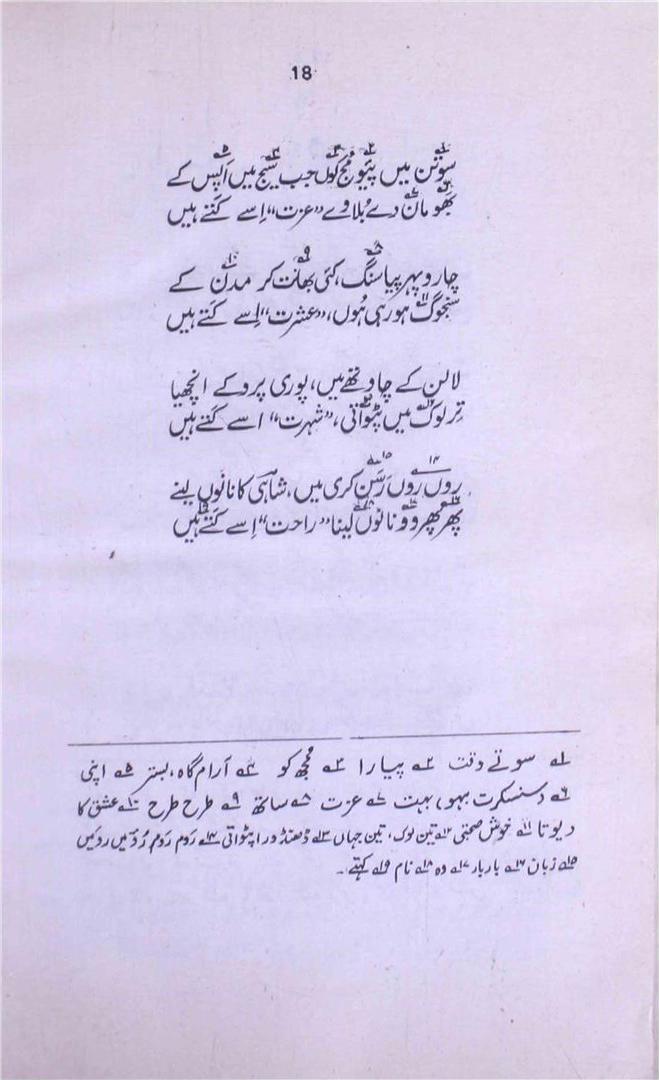 18
سوتن میں پیو مج کوں جب سیج میں اَپس کے
بھو مان دے بُلاوے "عزت" اِسے کتے ہیں
چارو پہر پیا سنگ، کئی بھانت کر مدن کے
سنجوگ ہو رہی ہوں، "عشرت" اِسے کتے ہیں
لالن کے چاؤ تھے میں، پوری پرو کے انچھیا
تِر لوک میں پٹوائی، "شہرت" اسے کتے ہیں
روں روں رَسَن کری میں، شاہی کا نانوں لینے
پھر پھر وو نانوں لینا "راحت" اِسے کتے ہیں
۱؎ سوتے وقت ۲؎ پیارا ۳؎ مُجھ کو ۴؎ آرام گاہ، بستر ۵؎ اپنی
۶؎ (سنسکرت بہو) بہت ۷؎ عزت ۸؎ ساتھ ۹؎ طرح طرح ۱۰؎ عشق کا
دیوتا ۱۱؎ خوش صحبتی ۱۲؎ تین لوک، تین جہاں ۱۳؎ ڈھنڈورا پٹواتی ۱۴؎ روم روم، رُوئیں روئیں
۱۵؎ زبان ۱۶؎ بار بار ۱۷؎ وہ ۱۸؎ نام ۱۹؎ کہتے۔